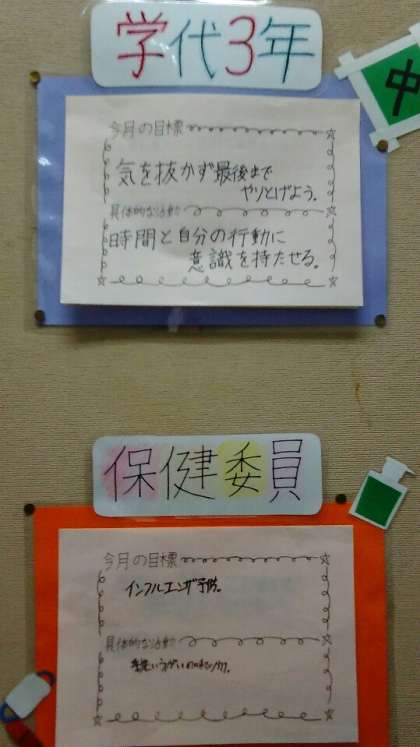 学代3年
中
今月の目標
気を抜かず最後まで
やりとげよう。
具体的な活動
時間と自分の行動に
意識を持たせる。
保健委員
今月の目標
インフルエンザ予防。
具体的な活動